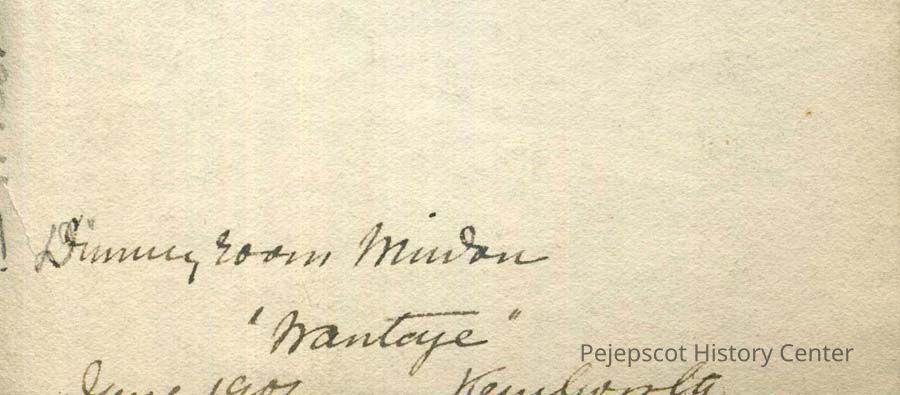 Dinning room Window
"Wantage"
Pejepscot History Center
June 1901 Kenilworth